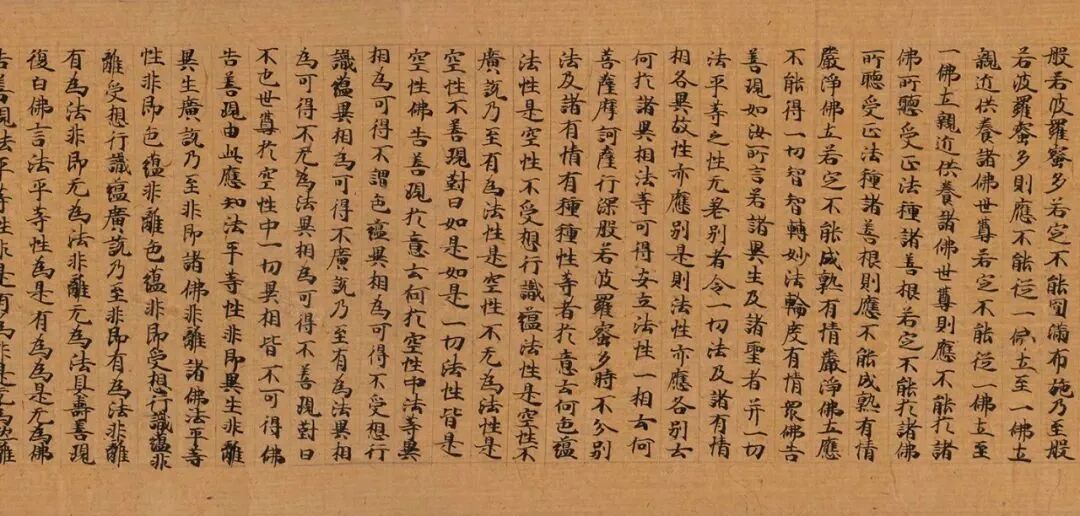 般若波羅蜜多若定不能圓滿布施乃至般
若波羅蜜多則應不能從一佛土至一佛土
親近供養諸佛世尊若定不能從一佛土至
一佛土親近供養諸佛世尊則應不能於諸
佛所聽受正法種諸善根若定不能於諸佛
所聽受正法種諸善根則應不能成熟有情
嚴淨佛土若定不能成熟有情嚴淨佛土應
不能得一切智智轉妙法輪度有情眾佛告
善現如汝所言若諸異生及諸聖者并一切
法平等之性无差別者今一切法及諸有情
相各異故性亦應別是則法性亦應各別云
何於諸異相法等可得安立法性一相云何
菩薩摩訶薩行深般若波羅蜜多時不分別
法及諸有情有種種性等者於意云何色蘊
法性是空性不受想行識蘊法性是空性不
廣說乃至有為法性是空性不无為法性是
空性不善現對曰如是如是一切法性皆是
空性佛告善現於意云何於空性中法等異
相為可得不謂色蘊異相為可得不受想行
識蘊異相為可得不廣說乃至有為法異相
為可得不无為法異相為可得不善現對曰
不也世尊於空性中一切異相皆不可得佛
告善現由此應知法平等性非即異生非離
異生廣說乃至非即諸佛非離諸佛法平等
性非即色蘊非離色蘊非即受想行識蘊非
離受想行識蘊廣說乃至非即有為法非離
有為法非即无為法非離无為法具壽善現
復白佛言法平等性為是有為為是无為佛
告善現法平等性非是有為非是无為然離